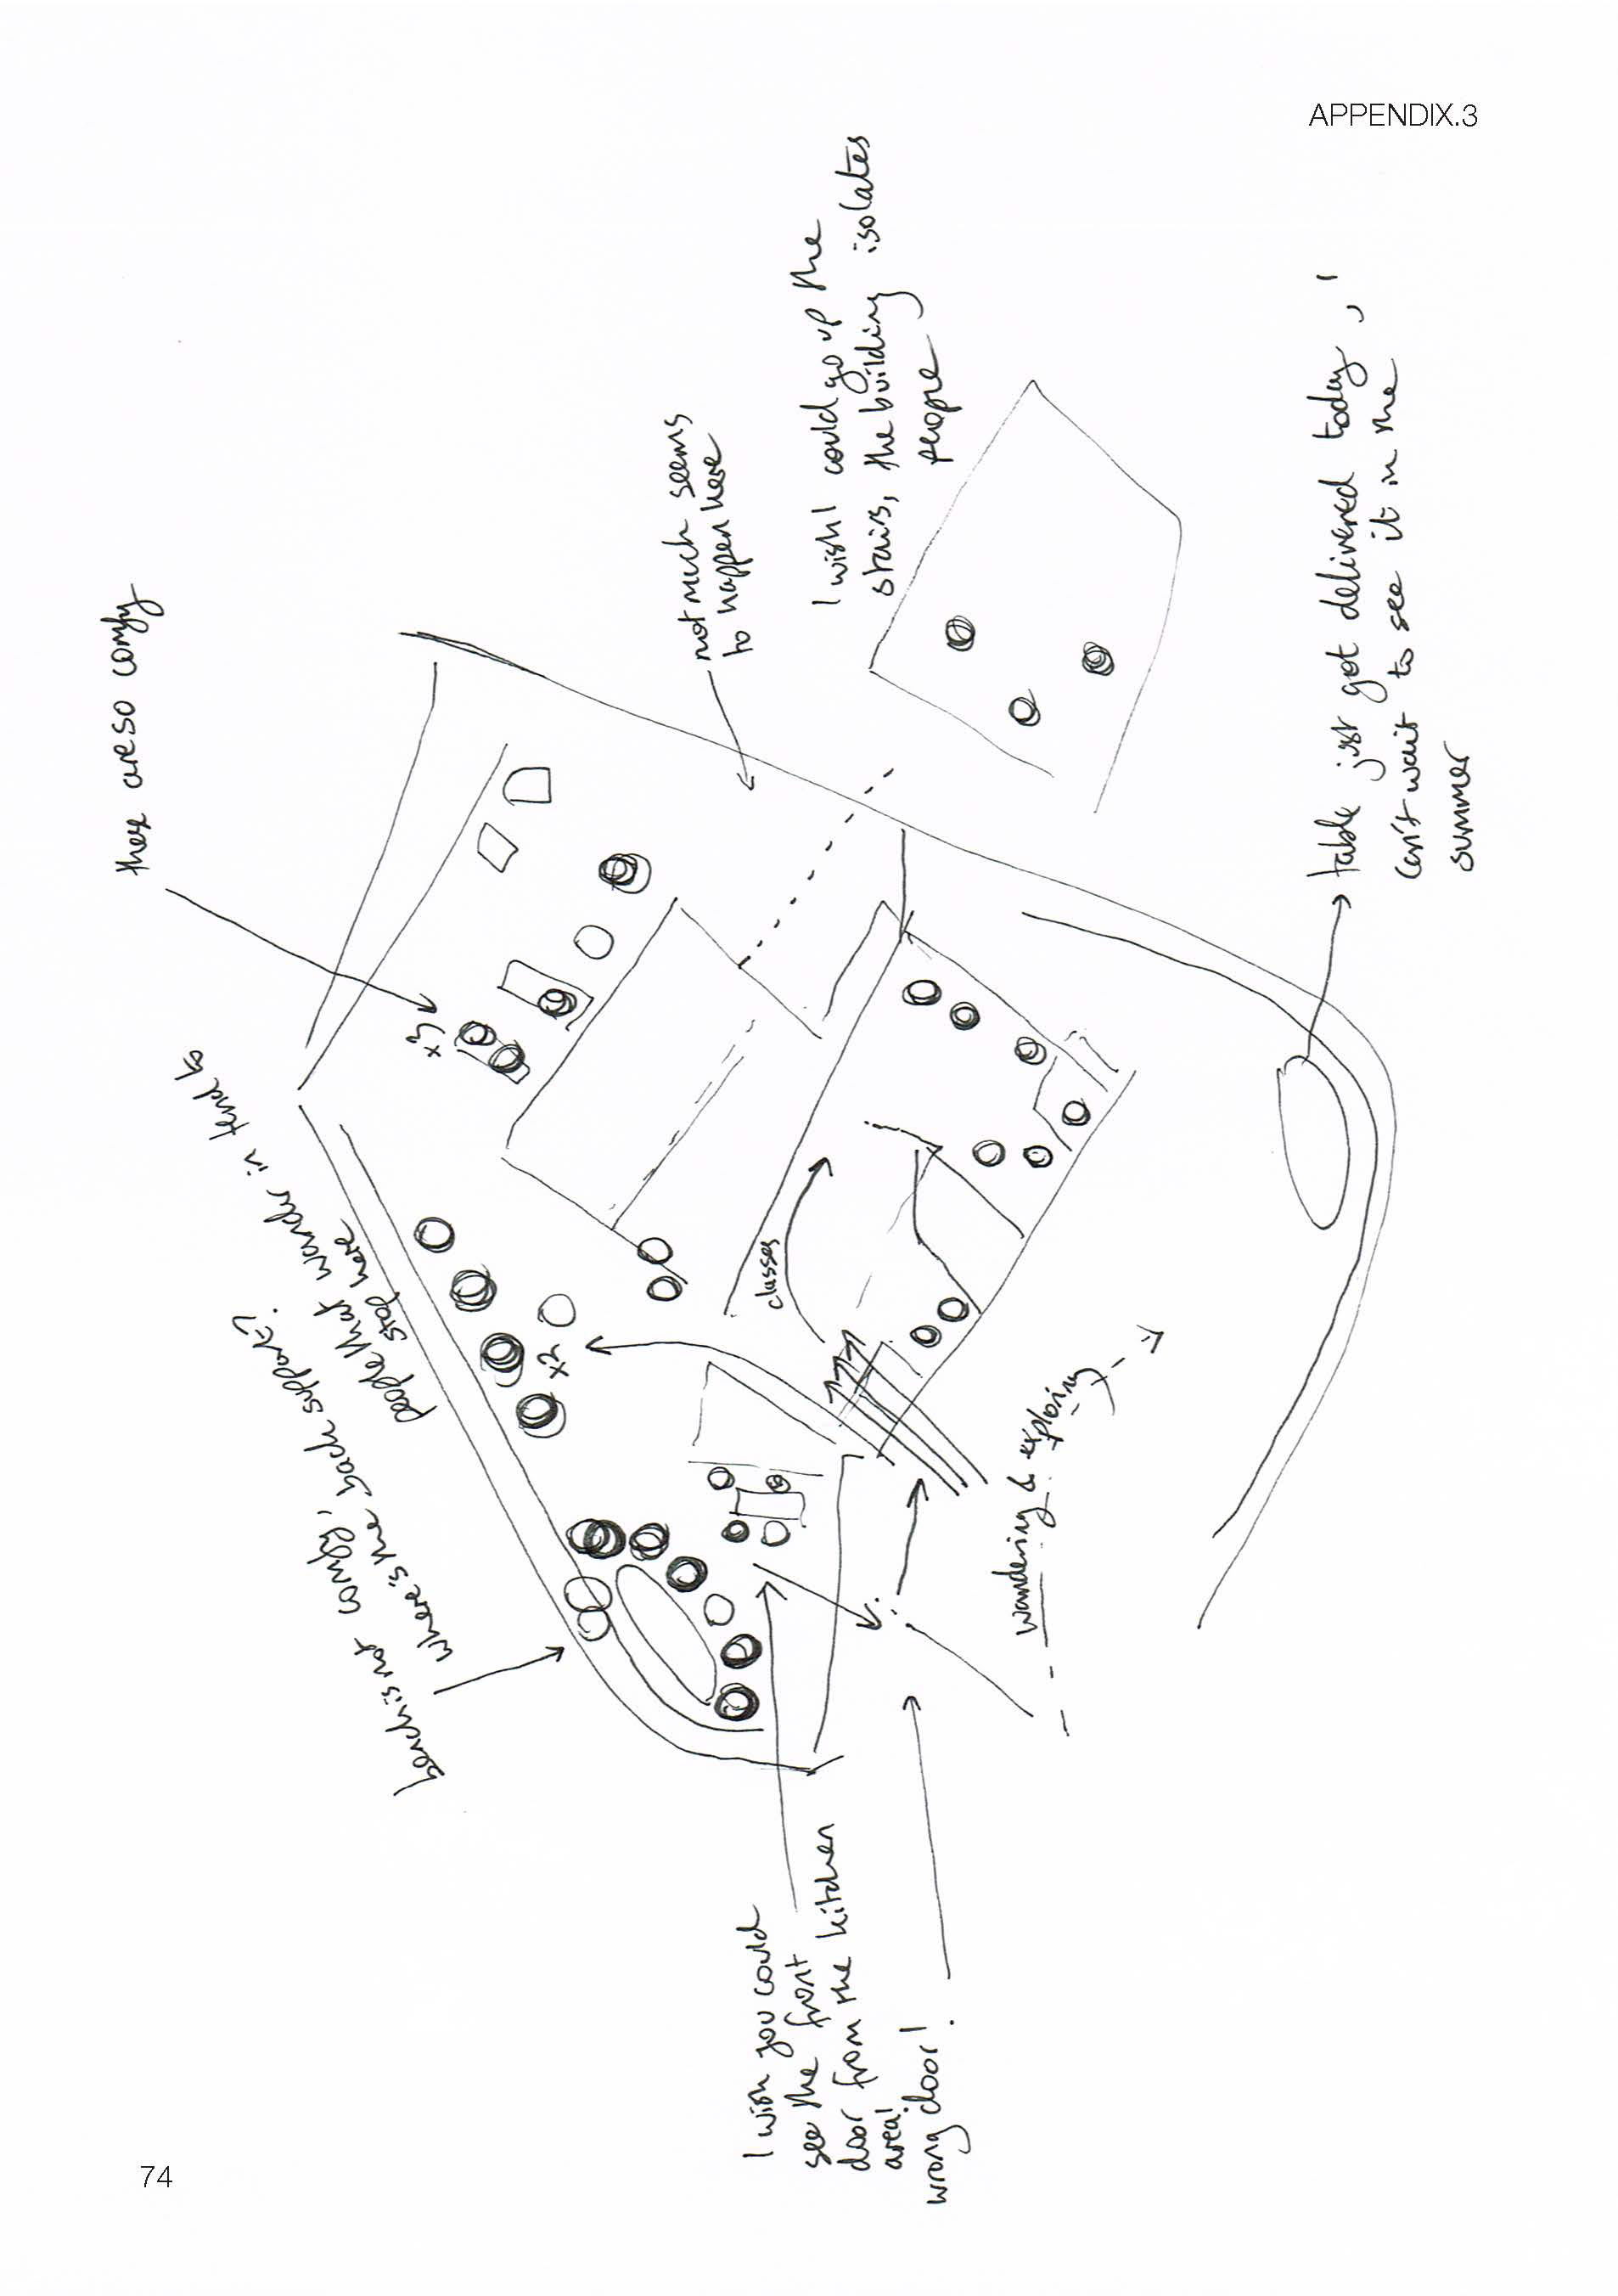 APPENDIX.3
these are so comfy
x3
not much seems
to happen here
I wish I could go up the
stairs, the building isolates
people
table just got delivered today,
can't wait to see it in the
summer
people that wander in tend to
stop here
bench is not comfy,
where's the back support?
x2
classes
wandering & exploring
I wish you could
see the front
door from the kitchen
area!
wrong door!
74